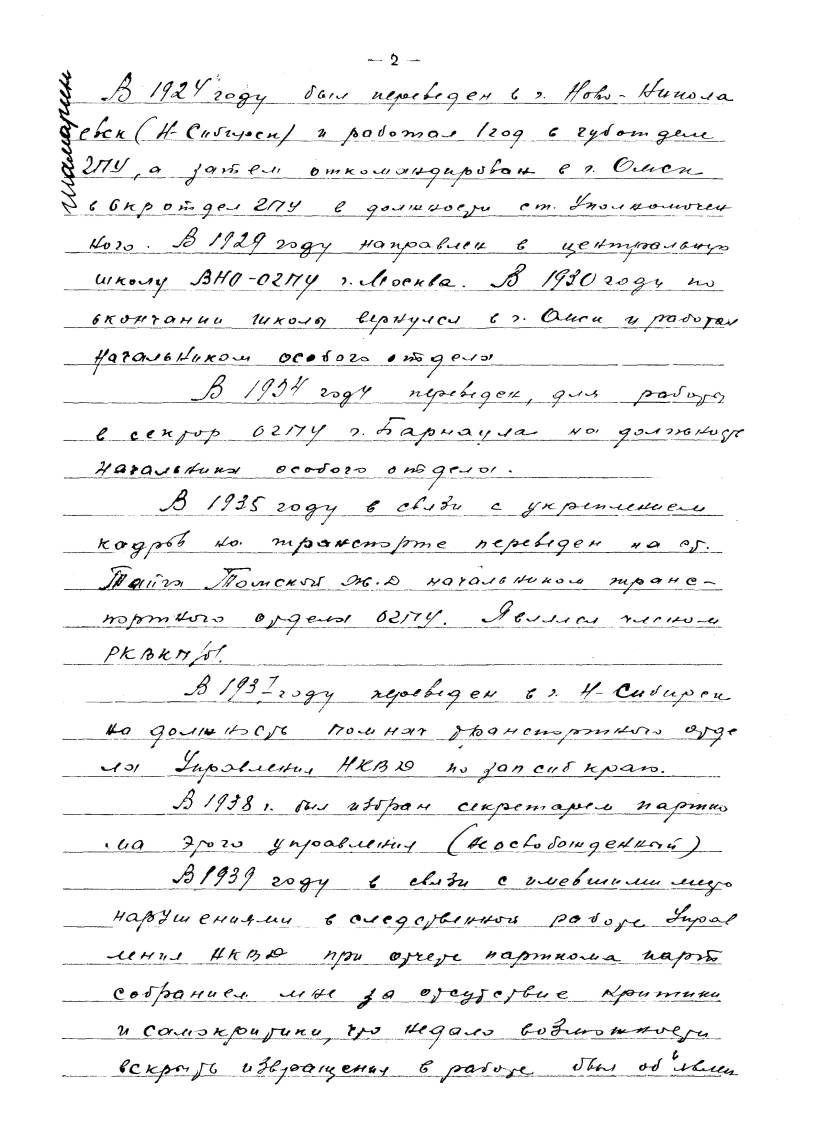 — 2 —
Шамарин
В 1924 году был переведен в г. Ново-Никола
евск (Н-Сибирск) и работал 1 год в губотделе
ГПУ, а затем откомандирован в г. Омск
в Окротдел ГПУ в должности ст. Уполномочен
ного. В 1929 году направлен в центральную
школу ВНО-ОГПУ г. Москва. В 1930 году по
окончании школы вернулся в г. Омск и работал
начальником особого отдела
В 1934 году переведен, для работы
в сектор ОГПУ г. Барнаула на должность
начальника особого отдела.
В 1935 году в связи с укреплением
кадров на транспорте переведен на ст.
Тайга Томской ж.д начальником транс-
портного отдела ОГПУ. Являлся членом
РКВКП/б/.
В 1937 году переведен в г. Н-Сибирск
на должность пом нач транспортного отде
ла Управления НКВД по запсибкраю.
В 1938 г. был избран секретарем партко
ма этого управления (неосвобожденный)
В 1939 году в связи с имевшими место
нарушениями в следственной работе Управ
ления НКВД при отчете парткома парт
собранием мне за отсутствие критики
и самокритики, что недало возможности
вскрыть извращения в работе был об"явлен